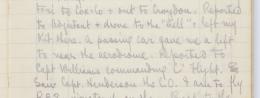 to Croydon. Reported
to Adjutant & drove to the "Bell" & left my
Kit there. A passing car gave me a lift
to near the aerodrome. Reported to
Capt Williams commanding 'C' Flight.
Saw Capt. Henderson the C.O. & am to fly